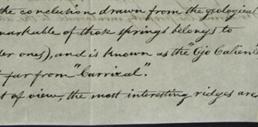 the conclusion drawn from the geological
remarkable of these springs belongs to
er ones), and is known as the "Ojo Caliente
far from "Carrizal".
t of view, the most interesting ridges are